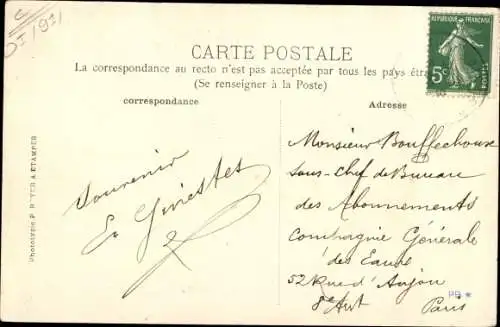 D1/1911
RÉPUBLIQUE FRANÇAISE
5c
POSTES
CARTE POSTALE
La correspondance au recto n'est pas acceptée par tous les pays
(Se renseigner à la Poste)
correspondance
Adresse
Phototypie P. ROYER A ETAMPES
Souvenir
Monsieur Bouffechoux
Sous-chef de Bureau
des Abonnements
Compagnie Générale
des Eaux
52 Rue d'Anjou
8e Arrt
Paris
PB *